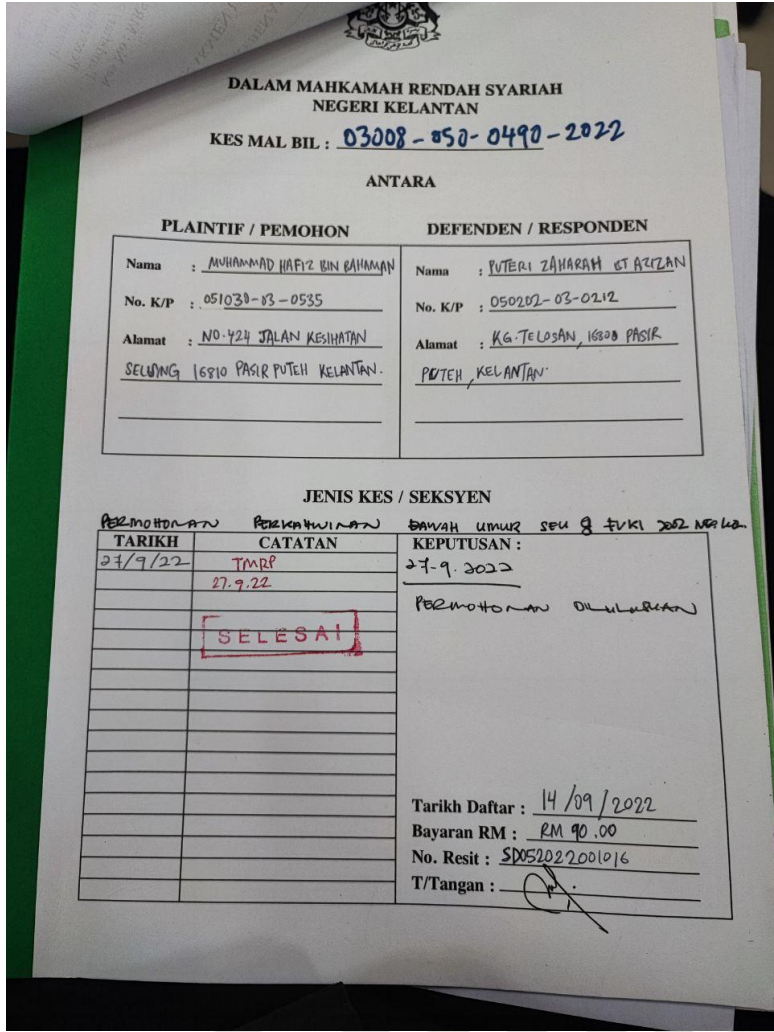 DALAM MAHKAMAH RENDAH SYARIAH
NEGERI KELANTAN
KES MAL BIL : 03008-050-0490-2022
ANTARA
PLAINTIF / PEMOHON
Nama : MUHAMMAD HAFIZ BIN BAHAMAN
No. K/P : 051030-03-0535
Alamat : NO.424 JALAN KESIHATAN
SELISING 16810 PASIR PUTEH KELANTAN.
DEFENDEN / RESPONDEN
Nama : PUTERI ZAHARAH BT AZIZAN
No. K/P : 050202-03-0212
Alamat : KG.TELOSAN, 16800 PASIR
PUTEH, KELANTAN.
JENIS KES / SEKSYEN
PERMOHONAN PERKAHWINAN BAWAH UMUR SEK 8 EUKI 2002
TARIKH CATATAN
27/9/22 TMRP
27.9.22
SELESAI
KEPUTUSAN :
27-9.2022
PERMOHONAN DILULUSKAN
Tarikh Daftar : 14/09/2022
Bayaran RM : RM 90.00
No. Resit : SD052022001016
T/Tangan :